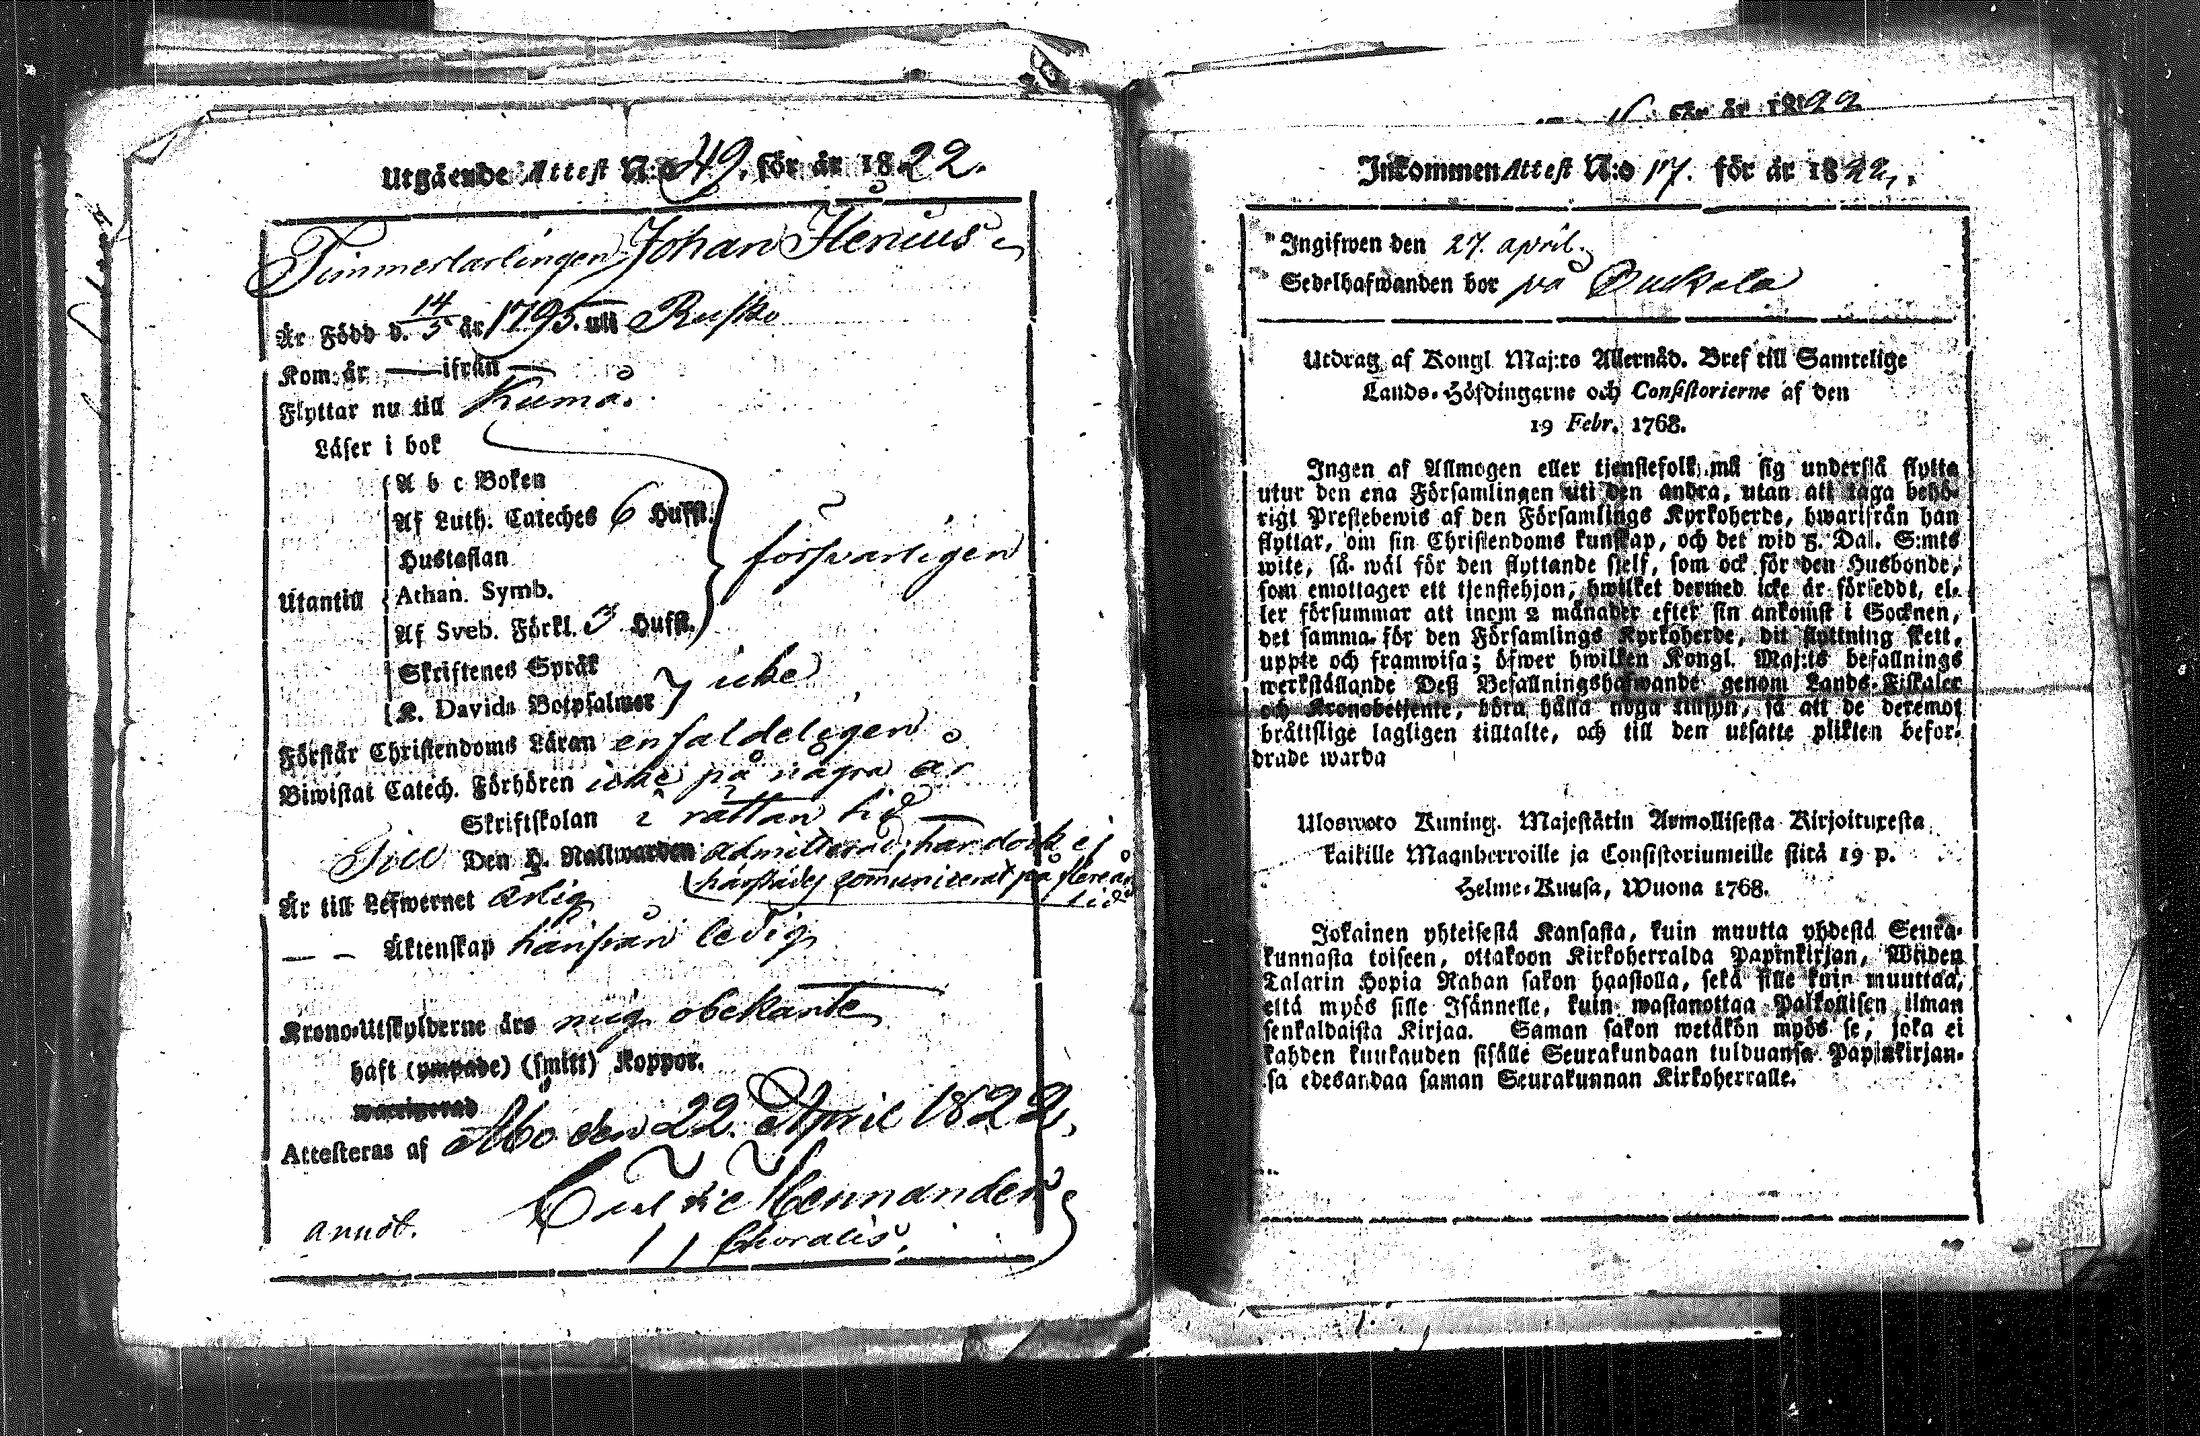 Utgående Attest N:o 49. för år 1822.
Timmerlärlingen Johan Flenius
Är Född d. 14/5 år 1795. uti Rusko
Kom år — ifrån —
Flyttar nu till Kumå.
Läser i bok
A b c Boken
Af Luth. Cateches 6 Hufst.
Hustaflan
försvarligen
Utantill
Athan. Symb.
Af Sveb. Förkl. 3 Hufst.
Skriftenes Språk
icke
K. Davids Botpsalmer
Förstår Christendoms Läran enfaldeligen
Biwistat Catech. Förhören icke på några år
Skriftskolan i rättan tid
Till Den H. Nattwarden admitterad; har dock ej
härstädes communicerat på flere år
tid
Är till Lefwernet ärlig
— — Äktenskap härifrån ledig
Krono-Utskylderne äro mig obekante
haft (ympade) (smitt) Koppor.
waccinerad
Attesteras af Åbo den 22. April 1822.
Hennander
annot.
Inkommen Attest N:o 17. för år 1822.
för år 1822
Ingifwen den 27. april.
Sedelhafwanden bor på
Utdrag af Kongl Maj:ts Allernåd. Bref till Samtelige
Lands-Höfdingarne och Consistorierne af den
19 Febr. 1768.
Ingen af Allmogen eller tjenstefolk må sig understå flytta
utur den ena Församlingen uti den andra, utan att taga behö-
rigt Prestebewis af den Församlings Kyrkoherde, hwarifrån han
flyttar, om sin Christendoms kunskap, och det wid 5. Dal. S:mts
wite, så wäl för den flyttande sjelf, som ock för den Husbonde,
som emottager ett tjenstehjon, hwilket dermed icke är försedt, el-
ler försummar att inom 2 månader efter sin ankomst i Socknen,
det samma för den Församlings Kyrkoherde, dit flyttning skett,
uppte och framwisa; öfwer hwilken Kongl. Maj:ts befallnings
werkställande Deß Befallningshafwande genom Lands-Fiskaler
och Kronobetjente, böra hålla noga tillsyn, så att de deremot
bråttslige lagligen tilltalte, och till den utsatte plikten befor-
drade warda
Uloswoto Kuning. Majestätin Armollisesta Kirjoituxesta
kaikille Maanherroille ja Consistoriumeille siitä 19 p.
Helme-Kuusa, Wuona 1768.
Jokainen yhteisestä Kansasta, kuin muutta yhdestä Seura-
kunnasta toiseen, ottakoon Kirkoherralda Papinkirjan, Wiiden
Talarin Hopia Rahan sakon haastolla, sekä sille kuin muuttaa,
että myös sille Isännelle, kuin wastanottaa Palkollisen ilman
senkaldaista Kirjaa. Saman sakon wetäkön myös se, joka ei
kahden kuukauden sisälle Seurakundaan tulduansa Papinkirjan-
sa edesandaa saman Seurakunnan Kirkoherralle.